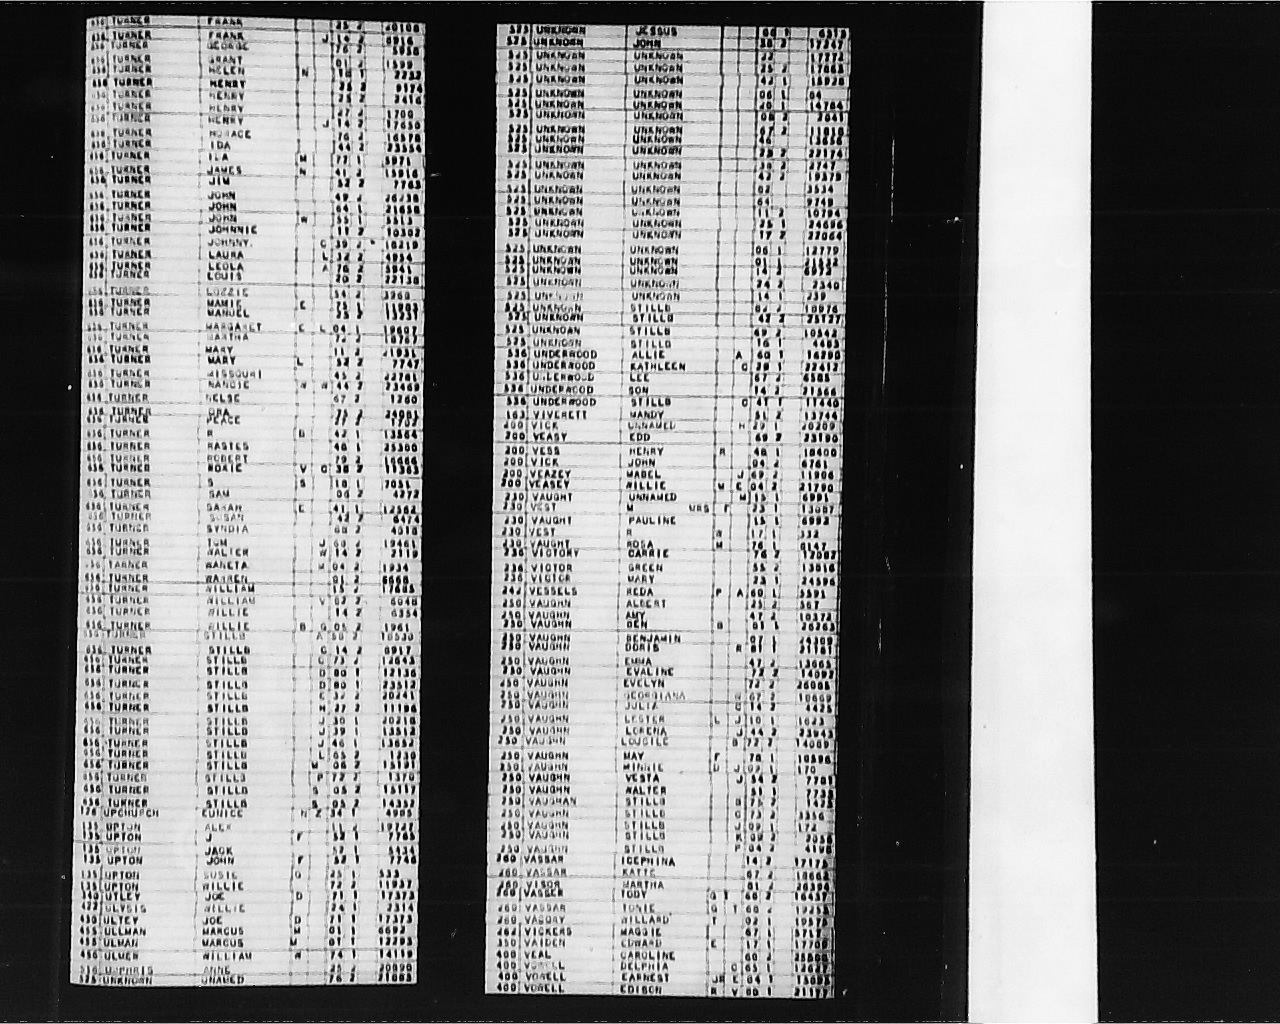 656 TURNER FRANK 25 2 20108
656 TURNER FRANK J 14 2
656 TURNER GEORGE 76 2
656 TURNER GRANT 01 2 1595
656 TURNER HELEN N 18 1 2252
656 TURNER HENRY 25 2 9174
656 TURNER HENRY 25 2 2416
656 TURNER HENRY 27 2 1700
656 TURNER HENRY J 14 2 17650
656 TURNER HORACE 76 2
656 TURNER IDA 44 2 23554
656 TURNER ILA M 77 1 5971
656 TURNER JAMES N 41 2 15916
656 TURNER JIM 52 2 7763
656 TURNER JOHN 49 2 26238
656 TURNER JOHN 64 1 21658
656 TURNER JOHN W 55 1 5313
656 TURNER JOHNNIE 11 2 10302
656 TURNER JOHNNY C 39 2 18219
656 TURNER LAURA L 32 2 4954
656 TURNER LEOLA A 76 2 5941
656 TURNER LOUIS 20 2 22138
656 TURNER LUZZIE 54 2 3960
656 TURNER MAMIE E 75 1
656 TURNER MANUEL 25 2
656 TURNER MARGARET E L 04 1 19607
656 TURNER MARTHA 72 2 18707
656 TURNER MARY 11 2 21931
656 TURNER MARY L 52 2 7747
656 TURNER MISSOURI 45 2 22781
656 TURNER NANCIE W W 44 2 23469
656 TURNER NELSE 67 2 1260
656 TURNER ORA 75 2 24081
656 TURNER PEACE 27 2 1702
656 TURNER R B 42 1 13564
656 TURNER RASTES 48 1 25300
656 TURNER ROBERT 79 2 16666
656 TURNER ROXIE V C 38 2 11363
656 TURNER S S 18 1 7051
656 TURNER SAM 06 2 4272
656 TURNER SARAH E 41 1 12562
656 TURNER SUSAN 42 2 6474
656 TURNER SYNDIA 68 2 4518
656 TURNER TOM J 60 2 19461
656 TURNER WALTER W 14 2 2119
656 TARNER WANETA M 04 2 1934
656 TURNER WARREN 01 2 6668
656 TURNER WILLIAM 15 2 17685
656 TURNER WILLIAM V 02 2 6048
656 TURNER WILLIE 14 2 6354
656 TURNER WILLIE B G 05 2 1961
656 TURNER STILLB A 50 2 18530
656 TURNER STILLB C 14 2 6917
656 TURNER STILLB C 73 2 12643
656 TURNER STILLB D 80 1 12136
656 TURNER STILLB D 80 1 23512
656 TURNER STILLB E 32 2 20241
656 TURNER STILLB H 27 2 11196
656 TURNER STILLB J 30 1 20218
656 TURNER STILLB J 39 1 13511
656 TURNER STILLB J 46 1 13652
656 TURNER STILLB L 65 2 1230
656 TURNER STILLB M 06 2 15191
656 TURNER STILLB P 72 2 1370
656 TURNER STILLB S 05 2 15117
656 TURNER STILLB S 05 2 14352
126 UPCHURCH EUNICE N Z 34 1 4985
135 UPTON ALEX 11 2 19727
135 UPTON J F 52 1 7765
135 UPTON JACK 52 1 5434
135 UPTON JOHN F 52 1 7746
135 UPTON SUSIE G 25 1 533
135 UPTON WILLIE 72 2 11937
340 UTLEY JOE D 71 1 17373
422 ULYSIS WILLIE 24 1 2314
430 ULTEY JOE D 71 1 17373
455 ULLMAN MARCUS M 01 1 6692
455 ULMAN MARCUS M 01 1 12293
456 ULMER WILLIAM W 74 1 14119
516 UMPHRIS ANNE 25 2 20890
525 UNKNOWN UNAMED 76 2 21083
525 UNKNOWN JESSUS 66 1 6575
525 UNKNOWN JOHN 38 2 17247
525 UNKNOWN UNKNOWN 22 17772
525 UNKNOWN UNKNOWN 25 2 27063
525 UNKNOWN UNKNOWN 42 1 15925
525 UNKNOWN UNKNOWN 06 1 04
525 UNKNOWN UNKNOWN 20 1 14784
525 UNKNOWN UNKNOWN 08 2 2041
525 UNKNOWN UNKNOWN 67 2 11010
525 UNKNOWN UNKNOWN 46 13656
525 UNKNOWN UNKNOWN 25 2 22174
525 UNKNOWN UNKNOWN 38 2 2747
525 UNKNOWN UNKNOWN 42 2 19575
525 UNKNOWN UNKNOWN 62 3534
525 UNKNOWN UNKNOWN 64 9749
525 UNKNOWN UNKNOWN 11 2 10794
525 UNKNOWN UNKNOWN 25 1 24696
525 UNKNOWN UNKNOWN 17 2 27064
525 UNKNOWN UNKNOWN 06 1 12770
525 UNKNOWN UNKNOWN 01 1 21532
525 UNKNOWN UNKNOWN 14 2 6592
525 UNKNOWN UNKNOWN 24 2 2340
525 UNKNOWN UNKNOWN 14 1 239
525 UNKNOWN STILLB 02 2 10976
525 UNKNOWN STILLB 42 2 25127
525 UNKNOWN STILLB 69 2 10542
525 UNKNOWN STILLB 16 1 4605
536 UNDERWOOD ALLIE A 60 1 16290
536 UNDERWOOD KATHLEEN C 28 1 22412
536 UNDERWOOD LEE 67 2 6585
536 UNDERWOOD SON 14 2 21566
536 UNDERWOOD STILLB C 41 1 11440
163 VIVERETT MANDY 51 2 13744
200 VICK UNNAMED H 29 1 20209
200 VEASY EDD 69 2 23190
200 VESS HENRY R 48 1 18400
200 VICK JOHN 04 2 6761
200 VEAZEY MABEL J 69 2 11906
200 VEASEY WILLIE M E 04 2 21790
230 VAUGHT UNNAMED M 15 1 6991
230 VEST M MRS F 23 1 13087
230 VAUGHT PAULINE 15 1 6992
230 VEST R W 17 1 332
230 VAUGHT ROSA M 76 1 6147
236 VICTORY CARRIE 76 2 12082
236 VICTOR GREEN 55 2 13016
236 VICTOR MARY 23 1 24596
242 VESSELS REDA P A 60 1 5591
250 VAUGHN ALBERT 25 2 567
250 VAUGHN AMY 47 2 10372
250 VAUGHN BEN B 81 1 26263
250 VAUGHN BENJAMIN 07 1 24300
250 VAUGHN DORIS R 81 1 21181
250 VAUGHN EMMA 47 2 13665
250 VAUGHN EVALINE 72 2 14092
250 VAUGHN EVELYN 72 2 26085
250 VAUGHN GEORGIANA G 67 2 10669
250 VAUGHN JULIA C 14 2 4425
250 VAUGHN LESTER L J 10 1 1623
250 VAUGHN LORENA J 44 2 23943
250 VAUGHN LOUCILE B 72 2 14089
250 VAUGHN MAY F 78 1 10596
250 VAUGHN MINNIE D J 09 1 170
250 VAUGHN VESTA J 54 2 7781
250 VAUGHN WALTER 51 1 1735
250 VAUGHAN STILLB B 75 2 1425
250 VAUGHN STILLB C 73 2 3356
250 VAUGHN STILLB J 09 1 172
250 VAUGHN STILLB K 08 2 2058
250 VAUGHN STILLB P 04 2 4198
260 VASSAR ICEPHINA 14 2 17175
260 VASSAR KATTE 67 2 18662
260 VISOR MARTHA 81 2 26394
260 VASSER TODY G T 60 2 16437
260 VASSAR TONIE G T 60 2 19253
260 VASORY WILLARD T 02 1 19575
262 VICKERS MAGGIE 67 1 5717
350 VAIDEN EDWARD E 17 1 17709
400 VEAL CAROLINE 60 2 25500
400 VOWELL DELPHIA C 65 1 12627
400 VOWELL EARNEST JR E 04 1 15095
400 VOWELL EDISON R V 80 1